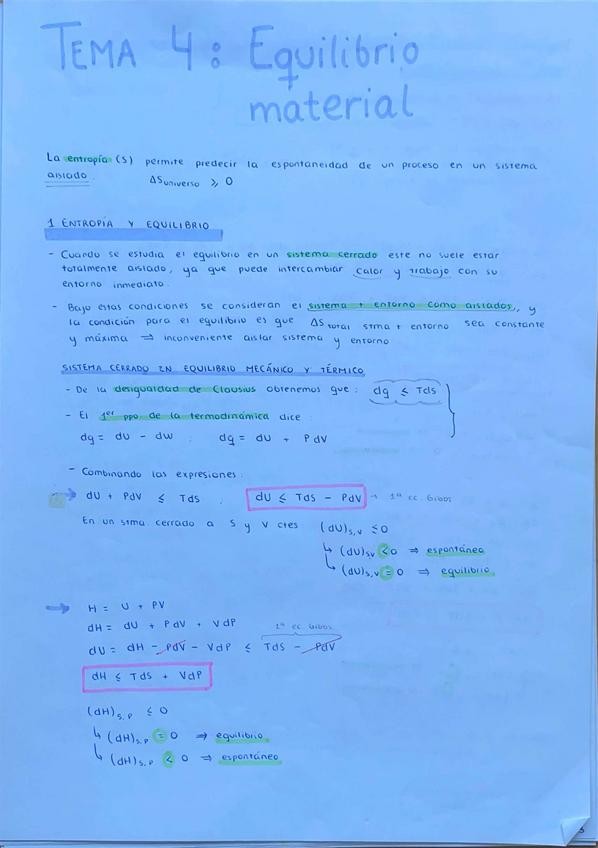 TEMA 4: Equilibrio
material
La entropía (S) permite predecir la espontaneidad de un proceso en un sistema
aislado. ΔSuniverso ⩾ 0
1 ENTROPÍA Y EQUILIBRIO
- Cuando se estudia el equilibrio en un sistema cerrado este no suele estar
totalmente aislado, ya que puede intercambiar calor y trabajo con su
entorno inmediato.
- Bajo estas condiciones se consideran el sistema + entorno como aislados, y
la condición para el equilibrio es que ΔStotal stma + entorno sea constante
y máxima ⇒ inconveniente aislar sistema y entorno
SISTEMA CERRADO EN EQUILIBRIO MECÁNICO Y TÉRMICO
- De la desigualdad de Clausius obtenemos que: dq ≤ TdS
- El 1er ppo de la termodinámica dice:
dq = dU - dw ; dq = dU + PdV
- Combinando las expresiones:
→ dU + PdV ≤ TdS ; dU ≤ TdS - PdV → 1ª ec. Gibbs
En un stma. cerrado a S y V ctes (dU)s,v ≤ 0
↳ (dU)s,v < 0 ⇒ espontáneo
↳ (dU)s,v = 0 ⇒ equilibrio
→ H = U + PV
dH = dU + PdV + VdP 1ª ec. Gibbs
dU = dH - PdV - VdP ≤ TdS - PdV
dH ≤ TdS + VdP
(dH)s,p ≤ 0
↳ (dH)s,p = 0 ⇒ equilibrio
↳ (dH)s,p < 0 ⇒ espontáneo